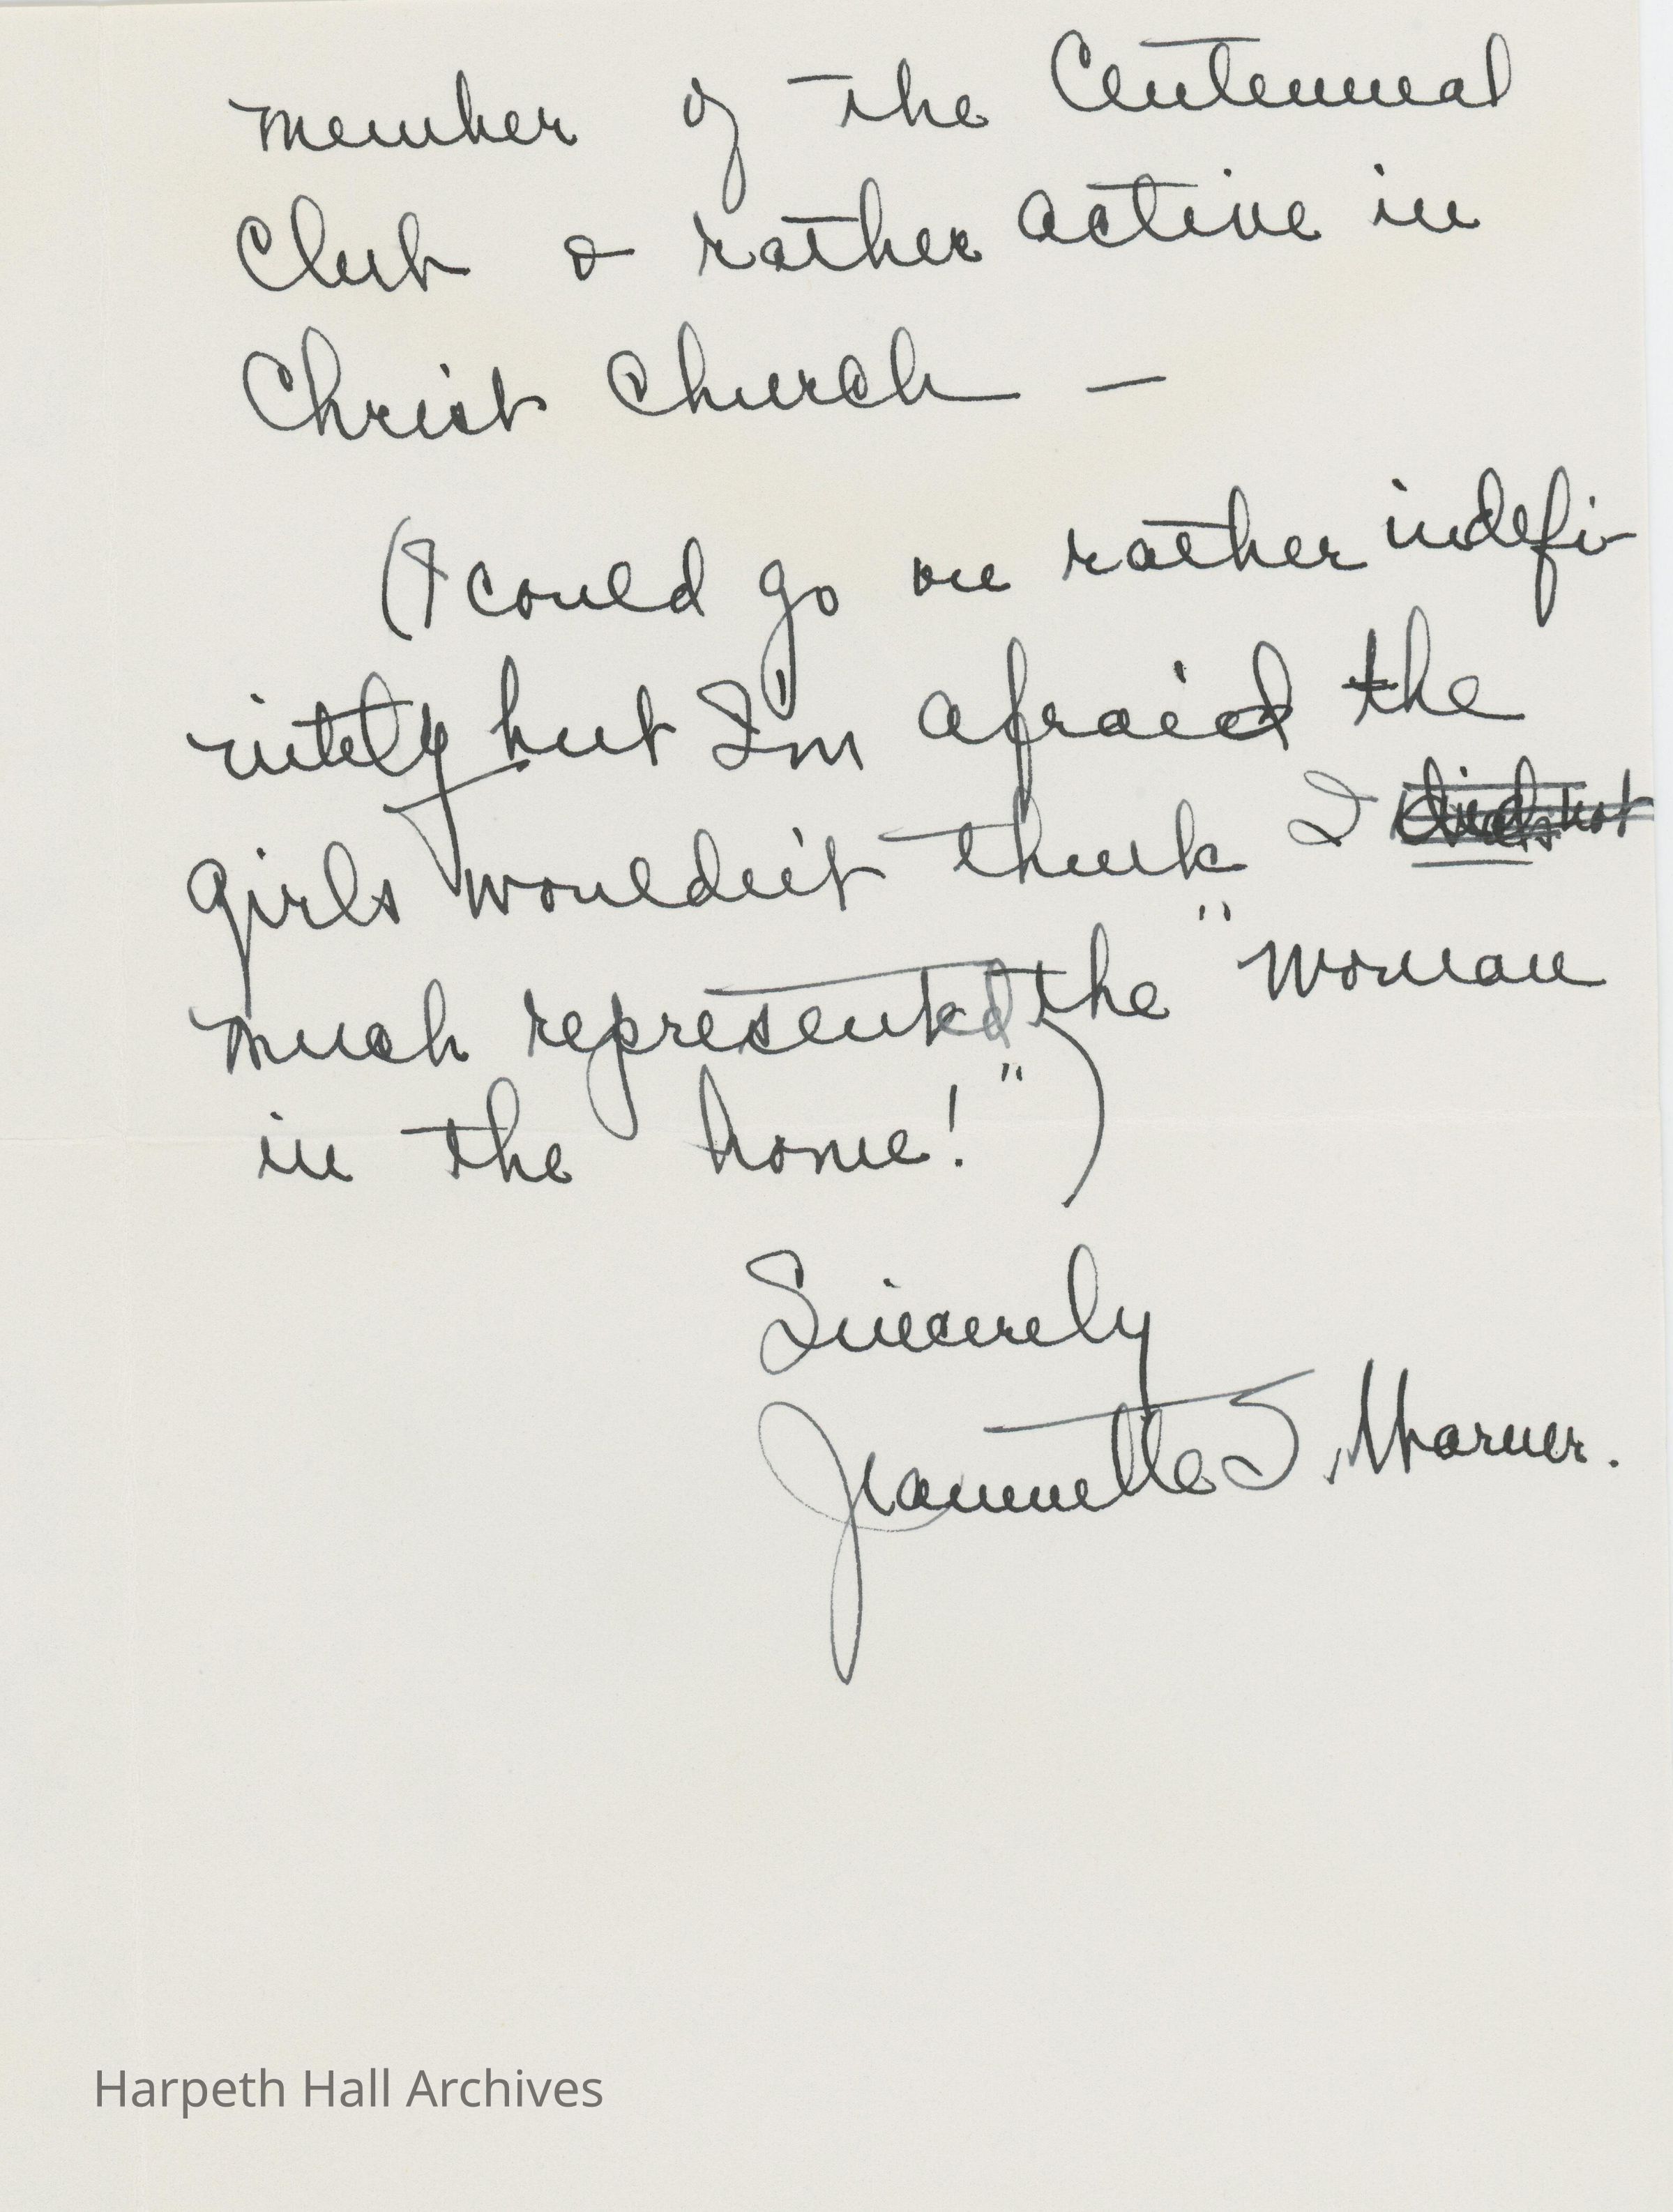 member of the Centennial
Club & rather active in
Christ Church —
(I could go on rather indefi-
nitely but I'm afraid the
girls wouldn't think I
much represented the "woman
in the home!")
Sincerely
Jeannette S. Warner.
Harpeth Hall Archives